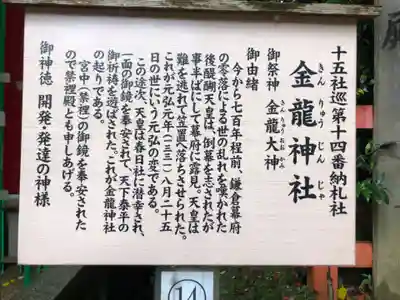 十五社巡第十四番納札社
金龍神社
きん りゅう じん じゃ
御祭神 金龍大神
きん りゅう おお かみ
御由緒
今から七百年程前、鎌倉幕府
の零落による世の乱れを嘆かれた
後醍醐天皇は、倒幕を志されたが
事半ばにして幕府に露見、天皇は
難を逃れて笠置へ落ちさせられた。
これが元弘元年(一三三一)八月二十五
日の世にいう元弘の変である。
この途次、天皇は春日社に潜幸され、
一面の御鏡を奉安されて、天下泰平の
御祈祷を遊ばされた。これが金龍神社
の起りである。
宮中(禁裡)の御鏡を奉安された
ので禁裡殿とも申しあげる。
御神徳 開発・発達の神様
14